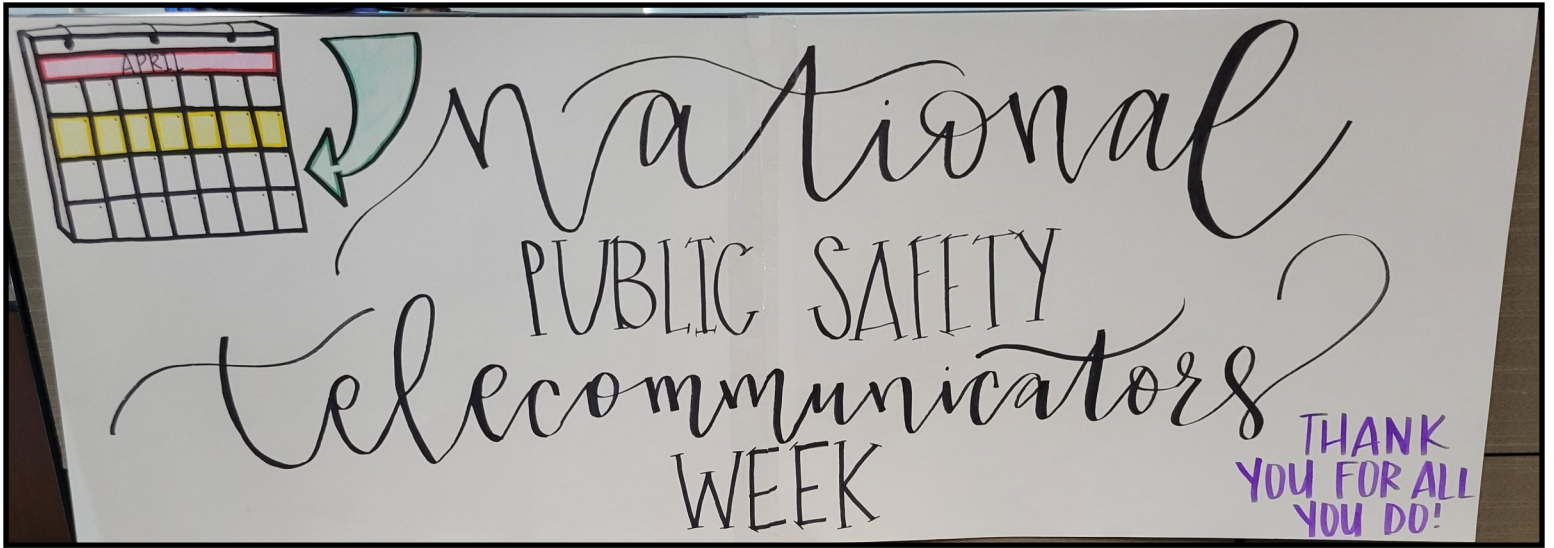 APRIL
national
PUBLIC SAFETY
telecommunicators
WEEK
THANK
YOU FOR ALL
YOU DO!